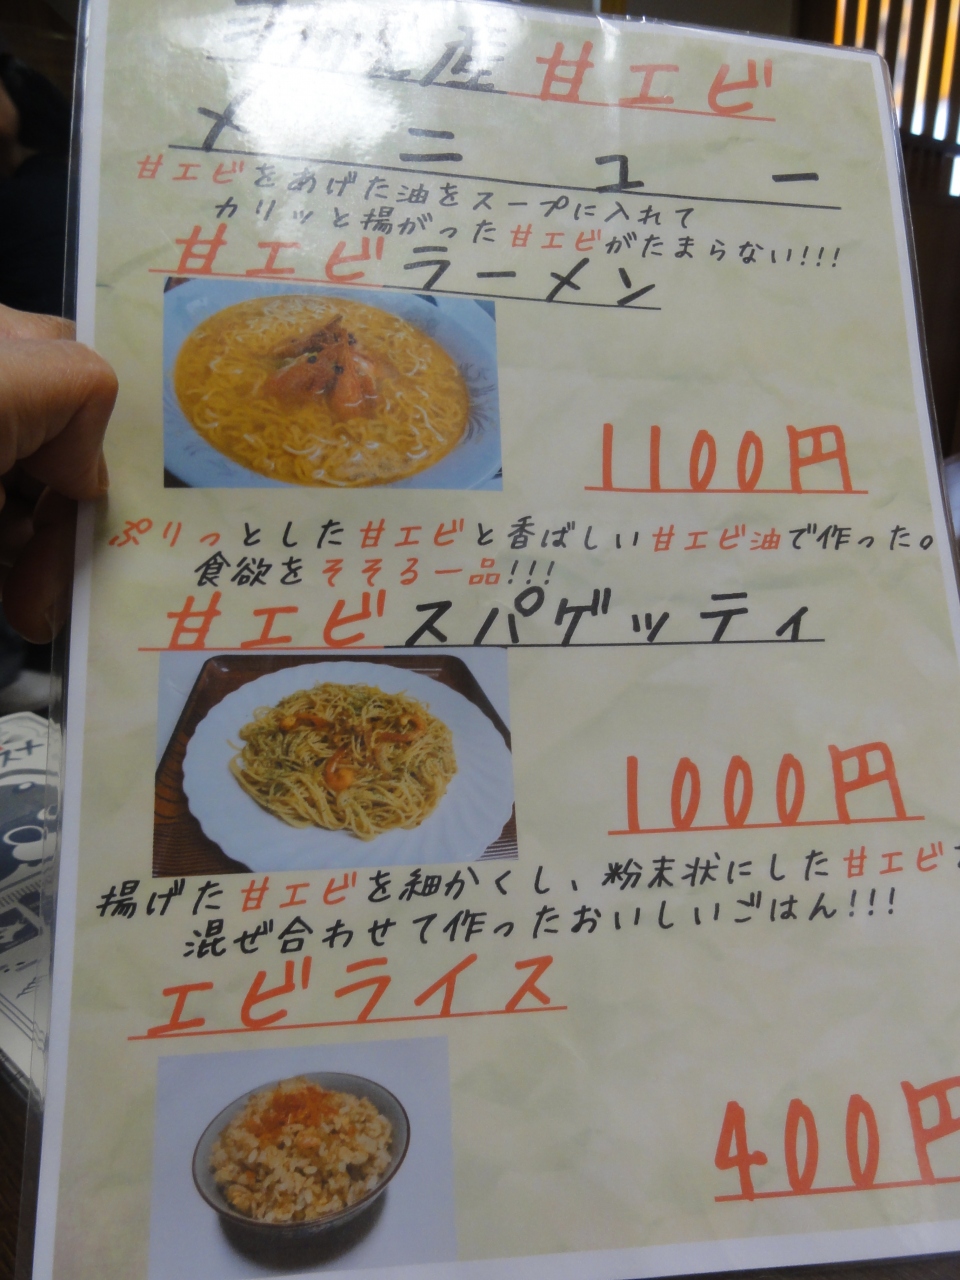 産甘エビ
メニュー
甘エビをあげた油をスープに入れて
カリッと揚がった甘エビがたまらない!!!
甘エビラーメン
1100円
ぷりっとした甘エビと香ばしい甘エビ油で作った。
食欲をそそる一品!!!
甘エビスパゲッティ
1000円
揚げた甘エビを細かくし、粉末状にした甘エビ
混ぜ合わせて作ったおいしいごはん!!!
エビライス
400円